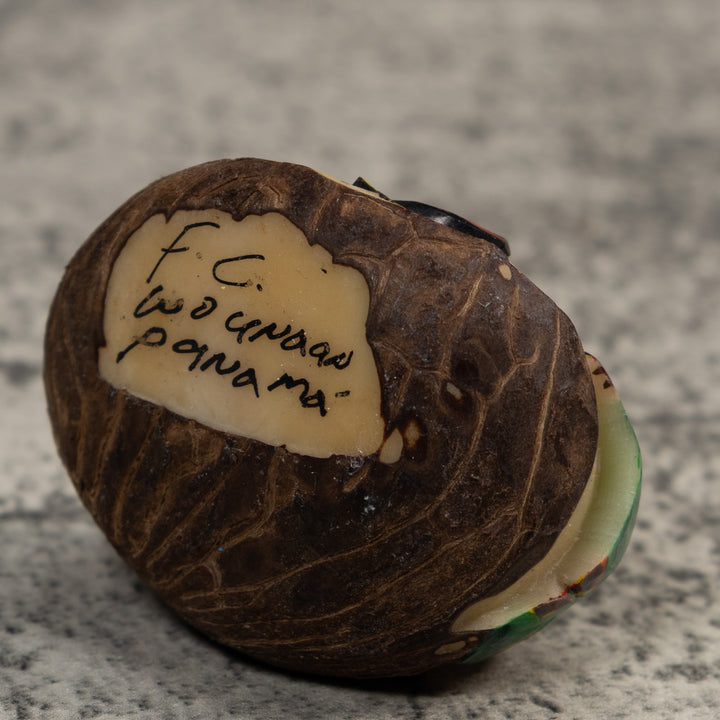 F.C.
WOUNAAN
PANAMÁ